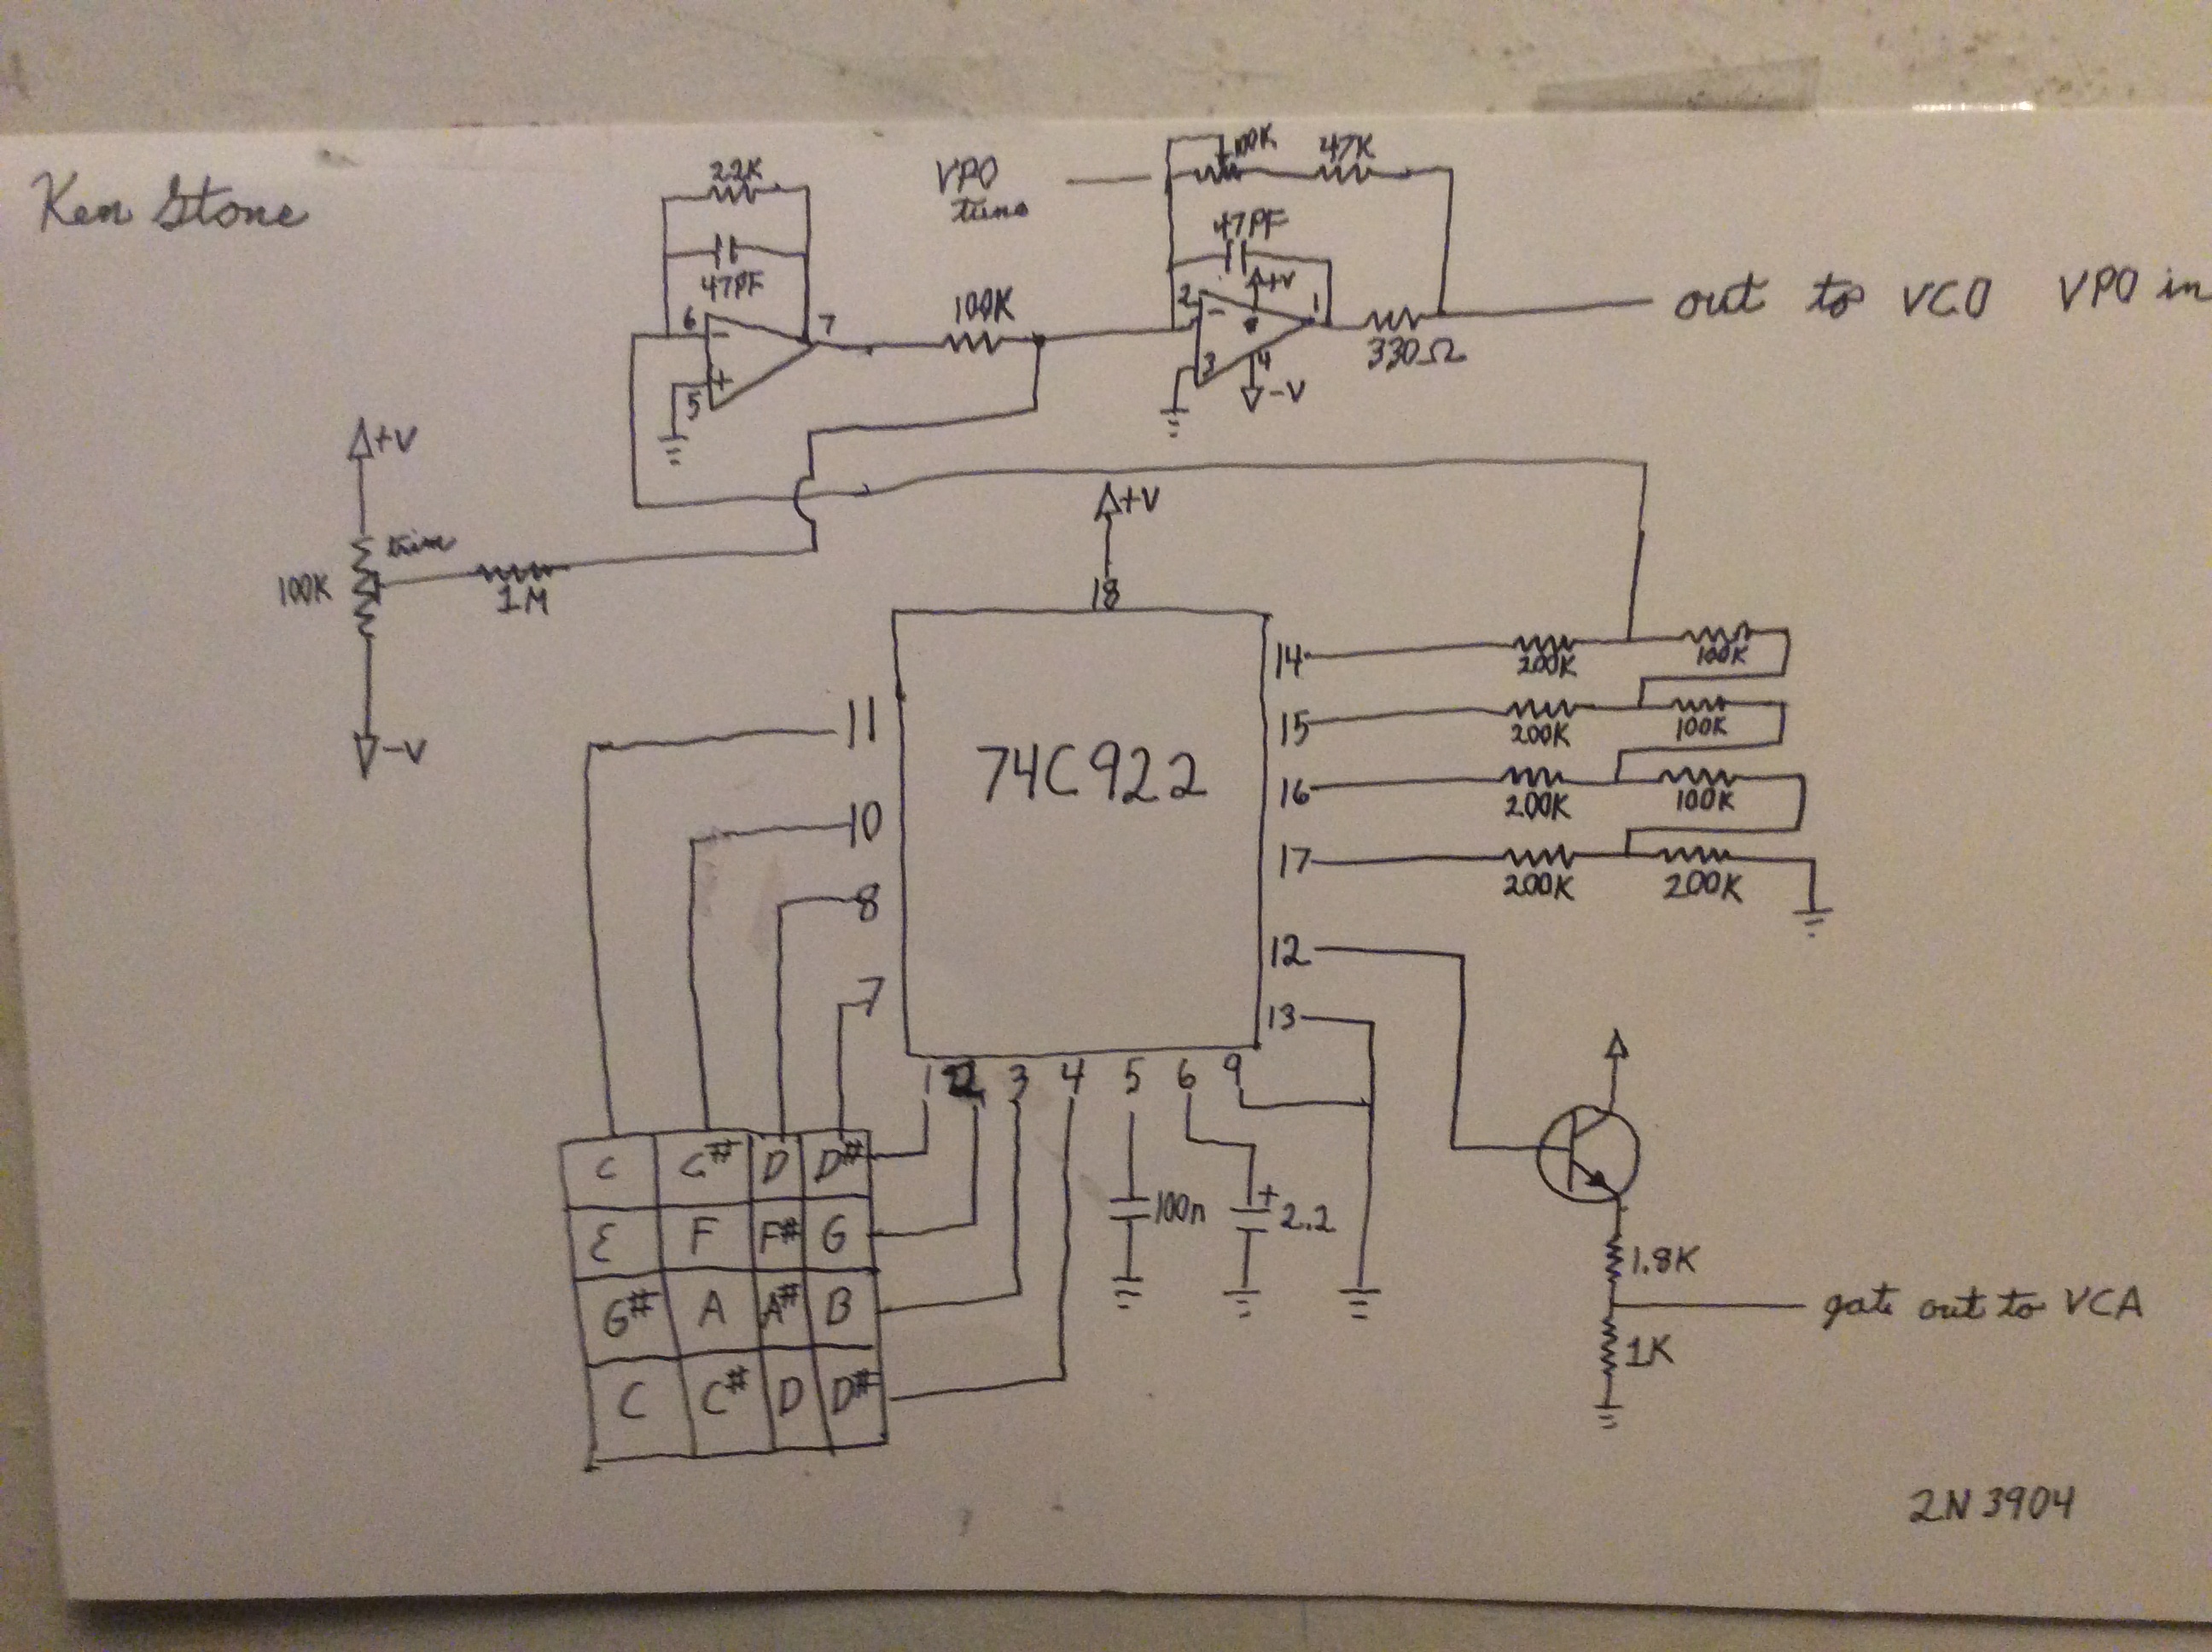 Ken Stone
22K
47PF
6
7
5
-
+
100K
VPO
tune
100K
47K
47PF
+V
2
1
-
3
4
-V
330Ω
out to VCO VPO in
+V
trim
100K
1M
-V
+V
18
74C922
11
10
8
7
14
200K
100K
15
200K
100K
16
200K
100K
17
200K
200K
12
13
1
2
3
4
5
6
9
C C# D D#
E F F# G
G# A A# B
C C# D D#
100n
+
2.2
1.8K
gate out to VCA
1K
2N3904